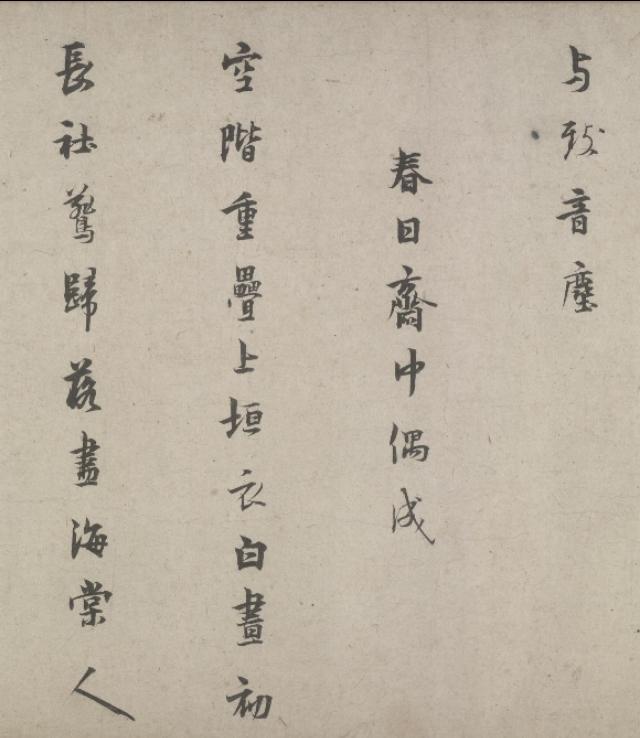 与致音塵
春日齋中偶成
空階重疊上垣衣白晝初
長社鷰歸落盡海棠人